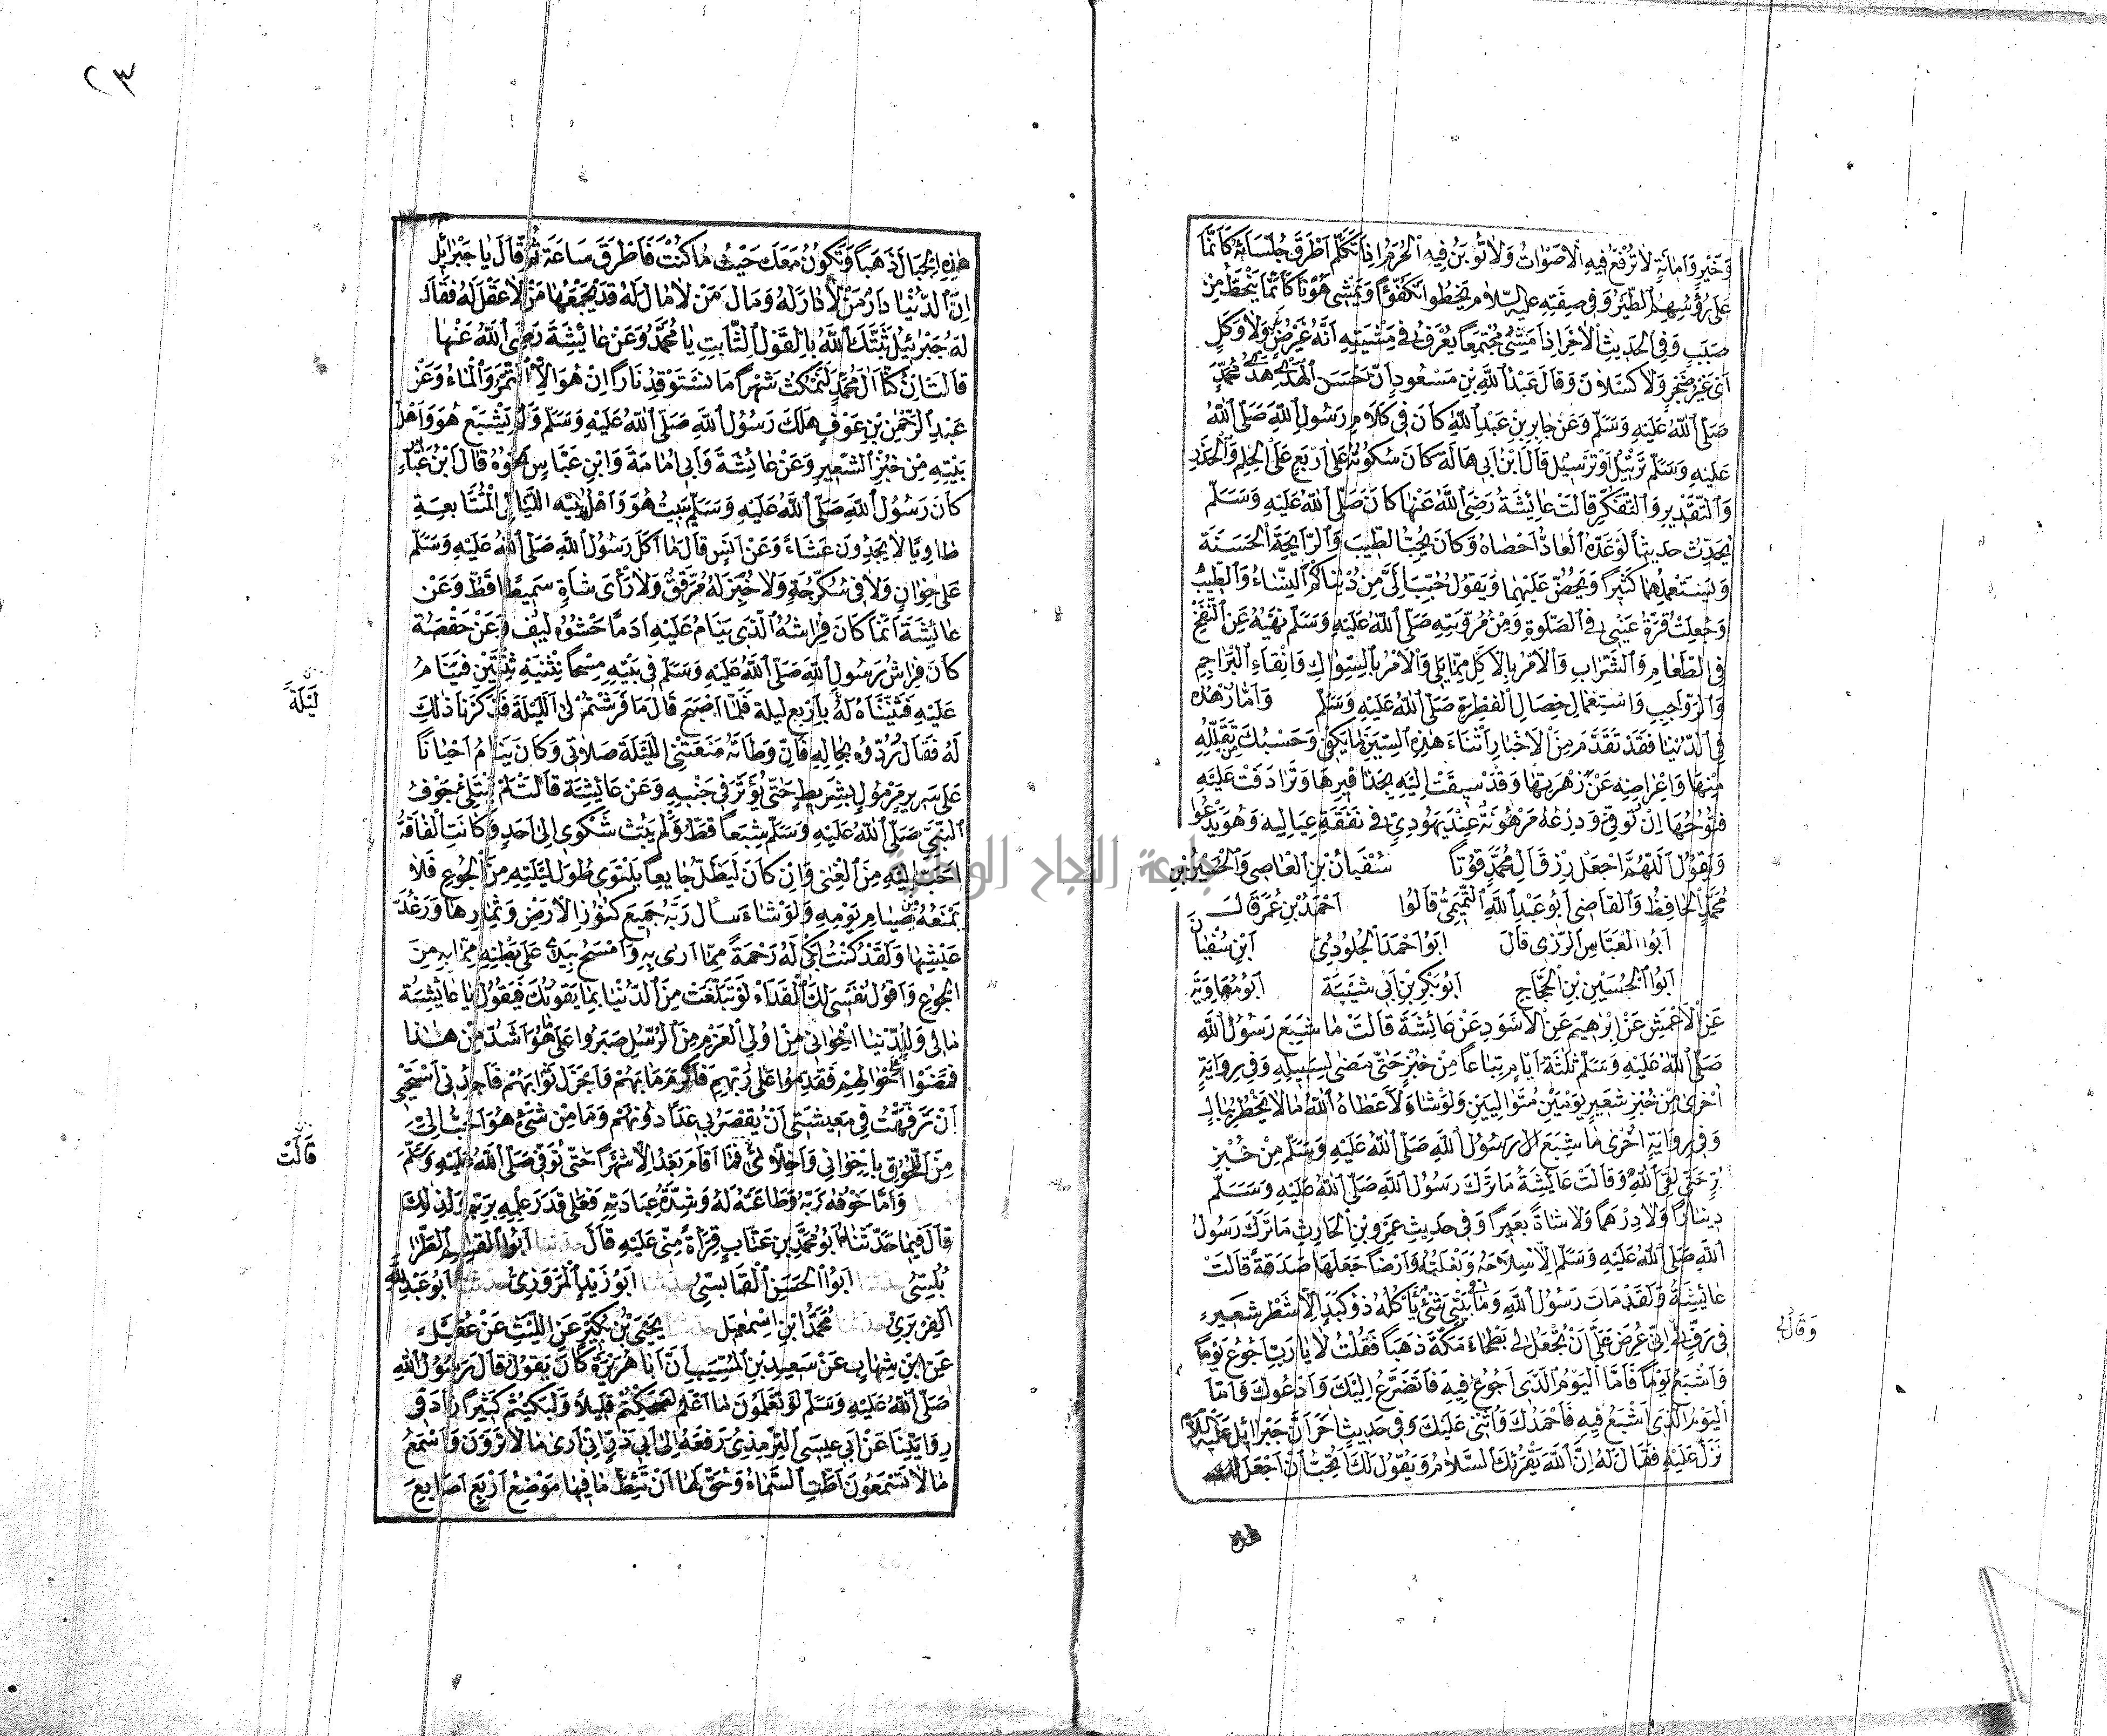 وَخَيْرٍ وَاَمَانَةٍ لَا تُرْفَعُ فِيهِ الْاَصْوَاتُ وَلَا تُؤْبَنُ فِيهِ الْحُرَمُ اِذَا تَكَلَّمَ اَطْرَقَ جُلَسَاؤُهُ كَاَنَّمَا
عَلَى رُؤُسِهِمُ الطَّيْرُ وَفِى صِفَتِهِ عليه السّلام يَخْطُوا تَكَفُّؤًا وَيَمْشِى هَوْنًا كَاَنَّمَا يَنْحَطُّ مِنْ
صَبَبٍ وَفِى الْحَدِيثِ الْاٰخَرِ اِذَا مَشٰى مَشٰى مُجْتَمِعًا يُعْرَفُ فِى مِشْيَتِهِ اَنَّهُ غَيْرُ غَرِضٍ وَلَا وَكِلٍ
اَىْ غَيْرُ ضَجِرٍ وَلَا كَسْلَانَ وَقَالَ عَبْدُ اللّٰهِ بْنِ مَسْعُودٍ اِنَّ اَحْسَنَ الْهَدْىِ هَدْىُ مُحَمَّدٍ
صَلَّى اللّٰهُ عَلَيْهِ وَسَلَّمَ وَعَنْ جَابِرِ بْنِ عَبْدِ اللّٰهِ كَانَ فِى كَلَامِ رَسُولِ اللّٰهِ صَلَّى اللّٰهُ
عَلَيْهِ وَسَلَّمَ تَرْتِيلٌ اَوْ تَرْسِيلٌ قَالَ ابْنُ اَبِى هَالَةَ كَانَ سُكُوتُهُ عَلَى اَرْبَعٍ عَلَى الْحِلْمِ وَالْحَذَرِ
وَالتَّقْدِيرِ وَالتَّفَكُّرِ قَالَتْ عَائِشَةُ رَضِىَ اللّٰهُ عَنْهَا كَانَ صَلَّى اللّٰهُ عَلَيْهِ وَسَلَّمَ
يُحَدِّثُ حَدِيثًا لَوْ عَدَّهُ الْعَادُّ اَحْصَاهُ وَكَانَ يُحِبُّ الطِّيبَ وَالرَّايِحَةَ الْحَسَنَةَ
وَيَسْتَعْمِلُهُمَا كَثِيرًا وَيَحُضُّ عَلَيْهِمَا وَيَقُولُ حُبِّبَ اِلَىَّ مِنْ دُنْيَاكُمُ النِّسَاءُ وَالطِّيبُ
وَجُعِلَتْ قُرَّةُ عَيْنِى فِى الصَّلٰوةِ وَمِنْ مُرُوَّتِهِ صَلَّى اللّٰهُ عَلَيْهِ وَسَلَّمَ نَهْيُهُ عَنِ النَّفْخِ
فِى الطَّعَامِ وَالشَّرَابِ وَالْاَمْرُ بِالْاَكْلِ مِمَّا يَلِى وَالْاَمْرُ بِالسِّوَاكِ وَاِنْقَاءِ الْبَرَاجِمِ
وَالرَّوَاجِبِ وَاسْتِعْمَالِ خِصَالِ الْفِطْرَةِ صَلَّى اللّٰهُ عَلَيْهِ وَسَلَّمَ وَاَمَّا زُهْدُهُ
فِى الدُّنْيَا فَقَدْ تَقَدَّمَ مِنَ الْاَخْبَارِ اَثْنَاءَ هٰذِهِ السِّيرَةِ مَا يَكْفِى وَحَسْبُكَ مِنْ تَقَلُّلِهِ
مِنْهَا وَاِعْرَاضِهِ عَنْ زَهْرَتِهَا وَقَدْ سِيقَتْ اِلَيْهِ بِحَذَافِيرِهَا وَتَرَادَفَتْ عَلَيْهِ
فُتُوحُهَا اِنْ تُوُفِّىَ وَدِرْعُهُ مَرْهُونَةٌ عِنْدَ يَهُودِىٍّ فِى نَفَقَةِ عِيَالِهِ وَهُوَ يَدْعُوا
وَيَقُولُ اَللّٰهُمَّ اجْعَلْ رِزْقَ اٰلِ مُحَمَّدٍ قُوتًا سُفْيَانُ بْنِ الْعَاصِى وَالْحُسَيْنُ بْنِ
مُحَمَّدٍ الْحَافِظُ وَالْقَاضِى اَبُو عَبْدِ اللّٰهِ التَّمِيمِىُّ قَالُوا اَحْمَدُ بْنِ عُمَرَ قَالَ
اَبُو الْعَبَّاسِ الرَّازِى قَالَ اَبُو اَحْمَدَ الْجُلُودِىُّ ابْنِ سُفْيَانَ
اَبُو الْحُسَيْنِ بْنِ الْحَجَّاجِ اَبُو بَكْرِ بْنِ اَبِى شَيْبَةَ اَبُو مُعَاوِيَةَ
عَنِ الْاَعْمَشِ عَنْ اِبْرَاهِيمَ عَنِ الْاَسْوَدِ عَنْ عَائِشَةَ قَالَتْ مَا شَبِعَ رَسُولُ اللّٰهِ
صَلَّى اللّٰهُ عَلَيْهِ وَسَلَّمَ ثَلٰثَةَ اَيَّامٍ تِبَاعًا مِنْ خُبْزٍ حَتّٰى مَضٰى لِسَبِيلِهِ وَفِى رِوَايَةٍ
اُخْرٰى مِنْ خُبْزِ شَعِيرٍ يَوْمَيْنِ مُتَوَالِيَيْنِ وَلَوْ شَاءَ لَاَعْطَاهُ اللّٰهُ مَا لَا يَخْطُرُ بِبَالٍ
وَفِى رِوَايَةٍ اُخْرٰى مَا شَبِعَ اٰلُ رَسُولِ اللّٰهِ صَلَّى اللّٰهُ عَلَيْهِ وَسَلَّمَ مِنْ خُبْزِ
بُرٍّ حَتّٰى لَقِىَ اللّٰهَ وَقَالَتْ عَائِشَةُ مَا تَرَكَ رَسُولُ اللّٰهِ صَلَّى اللّٰهُ عَلَيْهِ وَسَلَّمَ
دِينَارًا وَلَا دِرْهَمًا وَلَا شَاةً بَعِيرًا وَفِى حَدِيثِ عَمْرِو بْنِ الْحَارِثِ مَا تَرَكَ رَسُولُ
اللّٰهِ صَلَّى اللّٰهُ عَلَيْهِ وَسَلَّمَ اِلَّا سِلَاحَهُ وَبَغْلَتَهُ وَاَرْضًا جَعَلَهَا صَدَقَةً قَالَتْ
عَائِشَةُ وَلَقَدْ مَاتَ رَسُولُ اللّٰهِ وَمَا فِى بَيْتِى شَىْءٌ يَأْكُلُهُ ذُو كَبَدٍ اِلَّا شَطْرُ شَعِيرٍ
فِى رَفٍّ لِى اِنِّى عُرِضَ عَلَىَّ اَنْ تُجْعَلَ لِى بَطْحَاءُ مَكَّةَ ذَهَبًا فَقُلْتُ لَا يَا رَبِّ اَجُوعُ يَوْمًا
وَقَالَ لِى
وَاَشْبَعُ يَوْمًا فَاَمَّا الْيَوْمُ الَّذِى اَجُوعُ فِيهِ فَاَتَضَرَّعُ اِلَيْكَ وَاَدْعُوكَ وَاَمَّا
الْيَوْمُ الَّذِى اَشْبَعُ فِيهِ فَاَحْمَدُكَ وَاُثْنِى عَلَيْكَ وَفِى حَدِيثٍ اٰخَرَ اَنَّ جَبْرَائِلَ عَلَيْهِ السَّلَامُ
نَزَلَ عَلَيْهِ فَقَالَ لَهُ اِنَّ اللّٰهَ يُقْرِئُكَ السَّلَامُ وَيَقُولُ لَكَ اَتُحِبُّ اَنْ اَجْعَلَ لَكَ
هذه
٢٣
هٰذِهِ الْجِبَالَ ذَهَبًا وَتَكُونُ مَعَكَ حَيْثُ مَا كُنْتَ فَاَطْرَقَ سَاعَةً ثُمَّ قَالَ يَا جَبْرَائِلُ
اِنَّ الدُّنْيَا دَارُ مَنْ لَا دَارَ لَهُ وَمَالُ مَنْ لَا مَالَ لَهُ قَدْ يَجْمَعُهَا مَنْ لَا عَقْلَ لَهُ فَقَالَ
لَهُ جَبْرَئِيلُ ثَبَّتَكَ اللّٰهُ بِالْقَوْلِ الثَّابِتِ يَا مُحَمَّدُ وَعَنْ عَائِشَةَ رَضِىَ اللّٰهُ عَنْهَا
قَالَتْ اِنْ كُنَّا اٰلَ مُحَمَّدٍ لَنَمْكُثُ شَهْرًا مَا نَسْتَوْقِدُ نَارًا اِنْ هُوَ اِلَّا التَّمْرُ وَالْمَاءُ وَعَنْ
عَبْدِ الرَّحْمٰنِ بْنِ عَوْفٍ هَلَكَ رَسُولُ اللّٰهِ صَلَّى اللّٰهُ عَلَيْهِ وَسَلَّمَ وَلَمْ يَشْبَعْ هُوَ وَاَهْلُ
بَيْتِهِ مِنْ خُبْزِ الشَّعِيرِ وَعَنْ عَائِشَةَ وَاَبِى اُمَامَةَ وَابْنِ عَبَّاسٍ نَحْوُهُ قَالَ ابْنُ عَبَّاسٍ
كَانَ رَسُولُ اللّٰهِ صَلَّى اللّٰهُ عَلَيْهِ وَسَلَّمَ يَبِيتُ هُوَ وَاَهْلُ بَيْتِهِ اللَّيَالِى الْمُتَتَابِعَةِ
طَاوِيًا لَا يَجِدُونَ عَشَاءً وَعَنْ اَنَسٍ قَالَ مَا اَكَلَ رَسُولُ اللّٰهِ صَلَّى اللّٰهُ عَلَيْهِ وَسَلَّمَ
عَلَى خِوَانٍ وَلَا فِى سُكُرُّجَةٍ وَلَا خُبِزَ لَهُ مُرَقَّقٌ وَلَا رَأَى شَاةً سَمِيطًا قَطُّ وَعَنْ
عَائِشَةَ اِنَّمَا كَانَ فِرَاشُهُ الَّذِى يَنَامُ عَلَيْهِ اَدَمًا حَشْوُهُ لِيفٌ وَعَنْ حَفْصَةَ
كَانَ فِرَاشُ رَسُولِ اللّٰهِ صَلَّى اللّٰهُ عَلَيْهِ وَسَلَّمَ فِى بَيْتِهِ مِسْحًا نَثْنِيَهِ ثِنْيَتَيْنِ فَيَنَامُ
لَيْلَةً
عَلَيْهِ فَثَنَّيْنَاهُ لَهُ بِاَرْبَعٍ لَيْلَةً فَلَمَّا اَصْبَحَ قَالَ مَا فَرَشْتُمْ لِى اللَّيْلَةَ فَذَكَرْنَا ذٰلِكَ
لَهُ فَقَالَ رُدُّوهُ بِحَالِهِ فَاِنَّ وَطَاتَهُ مَنَعَتْنِى اللَّيْلَةَ صَلَاتِى وَكَانَ يَنَامُ اَحْيَانًا
عَلَى سَرِيرٍ مَرْمُولٍ بِشَرِيطٍ حَتّٰى يُؤَثِّرَ فِى جَنْبِهِ وَعَنْ عَائِشَةَ قَالَتْ لَمْ يَمْتَلِئْ جَوْفُ
النَّبِىِّ صَلَّى اللّٰهُ عَلَيْهِ وَسَلَّمَ شِبَعًا قَطُّ وَلَمْ يَبُثَّ شَكْوٰى اِلَى اَحَدٍ وَكَانَتِ الْفَاقَةُ
اَحَبَّ اِلَيْهِ مِنَ الْغِنٰى وَاِنْ كَانَ لَيَظَلُّ جَايِعًا يَلْتَوِى طُولَ لَيْلَتِهِ مِنَ الْجُوعِ فَلَا
يَمْنَعُهُ صِيَامِ يَوْمِهِ وَلَوْ شَاءَ سَأَلَ رَبَّهُ جَمِيعَ كُنُوزِ الْاَرْضِ وَثِمَارِهَا وَرَغْدَ
عَيْشِهَا وَلَقَدْ كُنْتُ اَبْكِى لَهُ رَحْمَةً مِمَّا اَرٰى بِهِ وَاَمْسَحُ بِيَدِى عَلَى بَطْنِهِ مِمَّا بِهِ مِنَ
الْجُوعِ وَاَقُولُ نَفْسِى لَكَ الْفَدَاءُ لَوْ تَبَلَّغْتَ مِنَ الدُّنْيَا بِمَا يَقُوتُكَ فَيَقُولُ يَا عَائِشَةُ
مَا لِى وَلِلدُّنْيَا اِخْوَانِى مِنْ اُولِى الْعَزْمِ مِنَ الرُّسُلِ صَبَرُوا عَلَى مَا هُوَ اَشَدُّ مِنْ هٰذَا
فَمَضَوْا عَلَى حَالِهِمْ فَقَدِمُوا عَلَى رَبِّهِمْ فَاَكْرَمَ مَابَهُمْ وَاَجْزَلَ ثَوَابَهُمْ فَاَجِدُنِى اَسْتَحْيِى
اِنْ تَرَفَّهْتُ فِى مَعِيشَتِى اَنْ يُقْصَرَ بِى غَدًا دُونَهُمْ وَمَا مِنْ شَىْءٍ هُوَ اَحَبُّ اِلَىَّ
قَالَتْ
مِنَ اللُّحُوقِ بِاِخْوَانِى وَاَخِلَّائِى فَمَا اَقَامَ بَعْدُ اِلَّا شَهْرًا حَتّٰى تُوُفِّىَ صَلَّى اللّٰهُ عَلَيْهِ وَسَلَّمَ
وَاَمَّا خَوْفُهُ رَبَّهُ وَطَاعَتُهُ لَهُ وَشِدَّةُ عِبَادَتِهِ فَعَلَى قَدْرِ عِلْمِهِ بِرَبِّهِ وَلِذٰلِكَ
قَالَ فِيمَا حَدَّثَنَا اَبُو مُحَمَّدِ بْنِ عَتَّابٍ قِرَاءَةً مِنِّى عَلَيْهِ قَالَ حدثنا اَبُو الْقَسِمِ الطَّرَا
بُلُسِىُّ حدثنا اَبُو الْحَسَنِ الْقَابِسِىُّ حدثنا اَبُو زَيْدٍ الْمَرْوَزِىُّ حدثنا اَبُو عَبْدِ اللّٰهِ
الْفِرَبْرِىُّ حدثنا مُحَمَّدُ ابْنِ اِسْمٰعِيلَ حدثنا يَحْيَى بْنُ بُكَيْرٍ عَنِ اللَّيْثِ عَنْ عُقَيْلٍ
عَنِ ابْنِ شِهَابٍ عَنْ سَعِيدِ بْنِ الْمُسَيَّبِ اَنَّ اَبَا هُرَيْرَةَ كَانَ يَقُولُ قَالَ رَسُولُ اللّٰهِ
صَلَّى اللّٰهُ عَلَيْهِ وَسَلَّمَ لَوْ تَعْلَمُونَ مَا اَعْلَمُ لَضَحِكْتُمْ قَلِيلًا وَلَبَكَيْتُمْ كَثِيرًا زَادَ فِى
رِوَايَتِنَا عَنْ اَبِى عِيسَى التِّرْمِذِىِّ رَفَعَهُ اِلَى اَبِى ذَرٍّ اِنِّى اَرٰى مَا لَا تَرَوْنَ وَاَسْمَعُ
مَا لَا تَسْمَعُونَ اَطَّتِ السَّمَاءُ وَحُقَّ لَهَا اَنْ تَئِطَّ مَا فِيهَا مَوْضِعُ اَرْبَعِ اَصَابِعَ
جامعة النجاح الوطنية